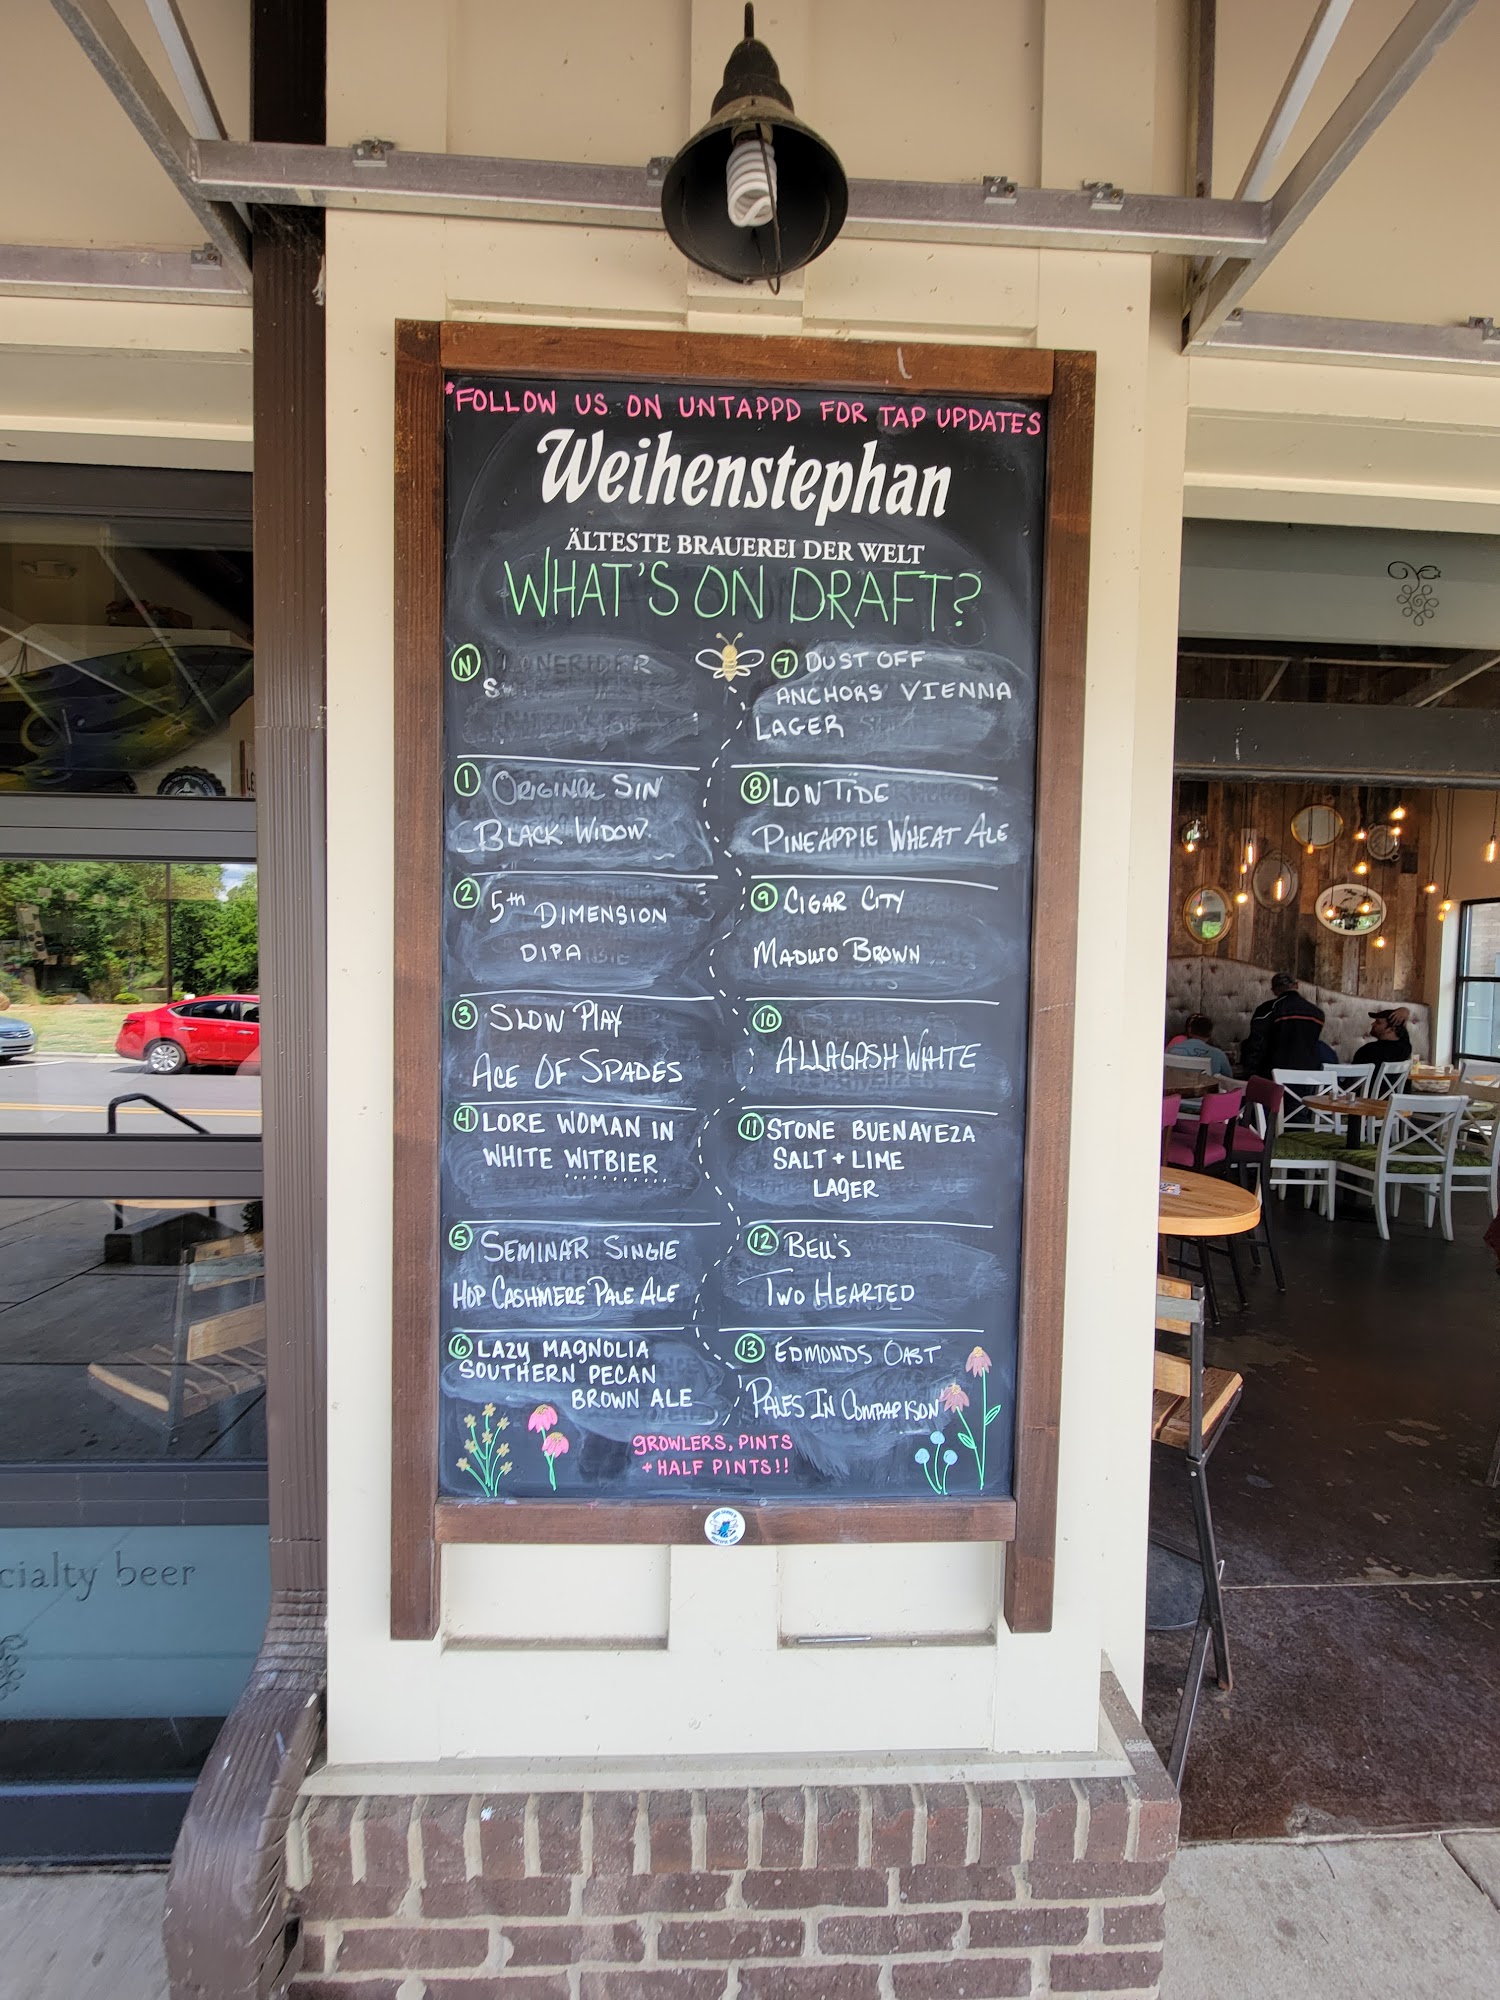 *FOLLOW US ON UNTAPPD FOR TAP UPDATES
Weihenstephan
ÄLTESTE BRAUEREI DER WELT
WHAT'S ON DRAFT?
N
1 ORIGINAL SIN
BLACK WIDOW
2 5th DIMENSION
DIPA
3 SLOW PLAY
ACE OF SPADES
4 LORE WOMAN IN
WHITE WITBIER
5 SEMINAR SINGLE
HOP CASHMERE PALE ALE
6 LAZY MAGNOLIA
SOUTHERN PECAN
BROWN ALE
7 DUST OFF
ANCHORS VIENNA
LAGER
8 LOW TIDE
PINEAPPLE WHEAT ALE
9 CIGAR CITY
MADURO BROWN
10
ALLAGASH WHITE
11 STONE BUENAVEZA
SALT + LIME
LAGER
12 BELL'S
TWO HEARTED
13 EDMONDS OAST
PALES IN COMPARISON
GROWLERS, PINTS
+ HALF PINTS!!
cialty beer